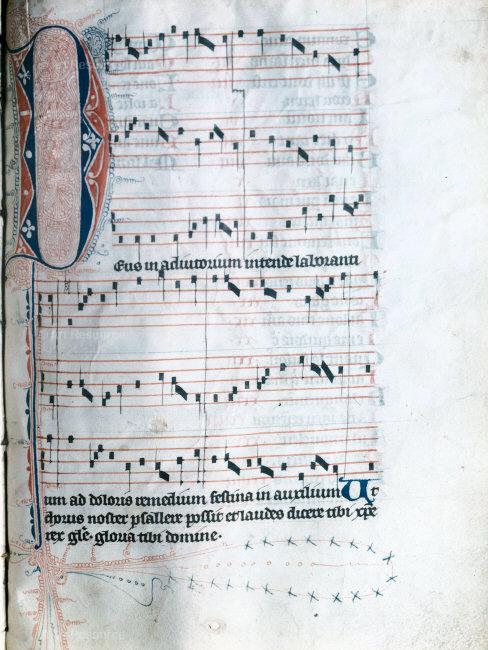 DEus in adiutorium intende laboranti
um ad doloris remedium festina in auxilium Ut
chorus noster psallere possit et laudes dicere tibi xp̄e
rex gl̄e. gloria tibi domine.